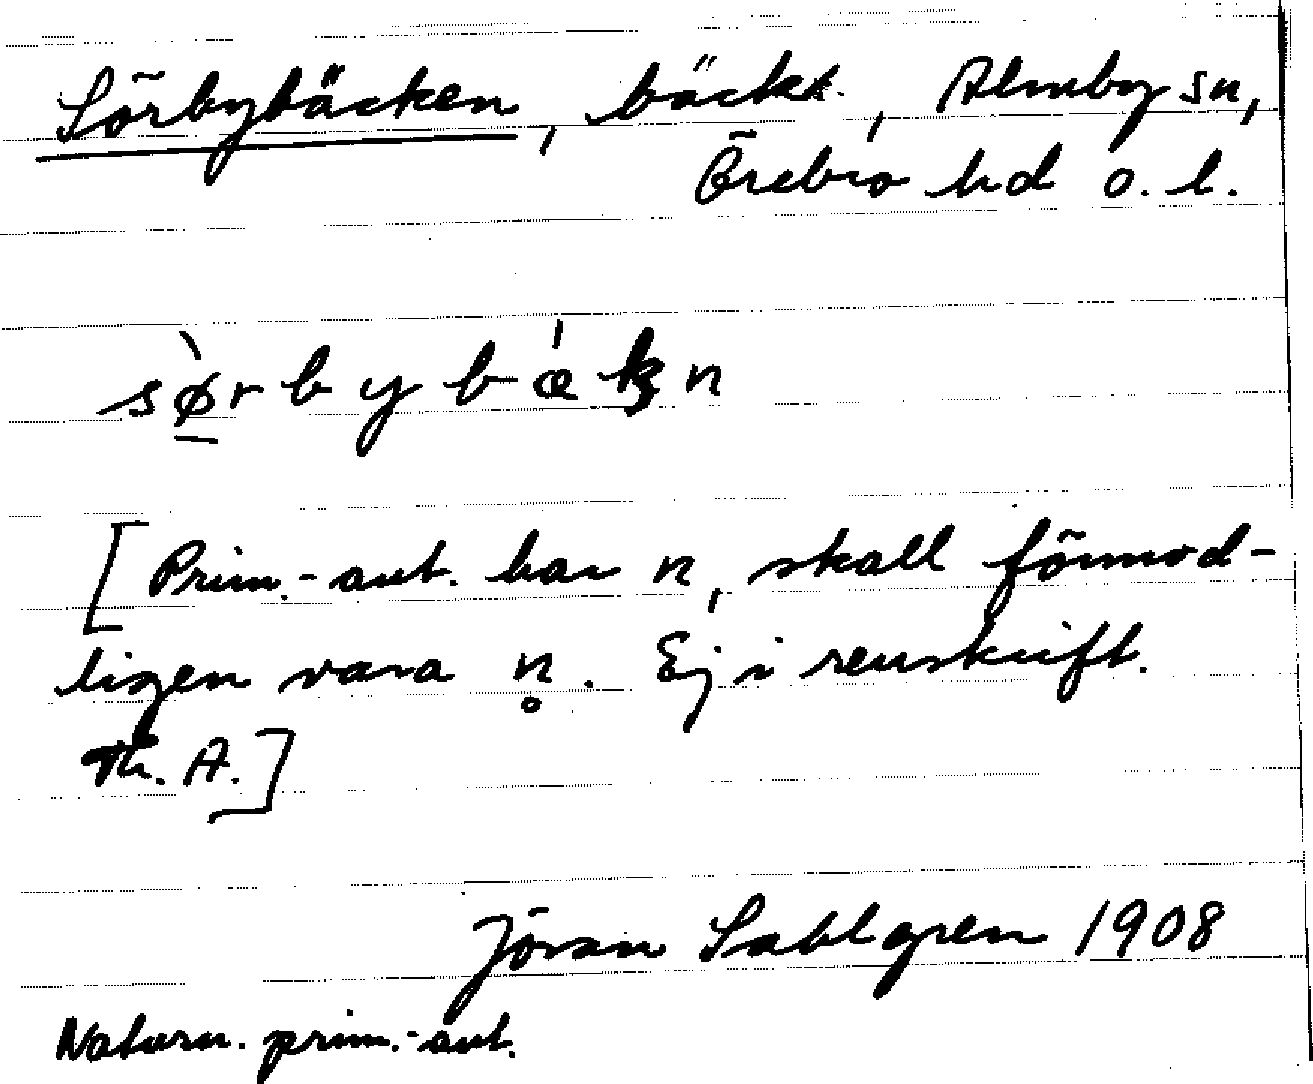 Sörbybäcken, bäck, Almby sn,
Örebro hd o. l.
sø̀rbybǽkn
[Prim.-ant. har n, skall förmod-
ligen vara n̥. Ej i renskrift.
Th. A.]
Jöran Sahlgren 1908
Naturn. prim.-ant.